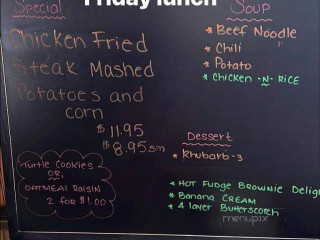 Friday lunch
Special
Chicken Fried
Steak Mashed
Potatoes and
corn
$11.95
$8.95sm
Turtle Cookies
OR,
OATMEAL RAISIN
2 for $1.00
Soup
* Beef Noodle
* Chili
* Potato
* Chicken -N- RICE
Dessert
* Rhubarb-3
* HOT FUDGE BROWNIE Deligh
* Banana CREAM
* 4 layer Butterscotch
menupix